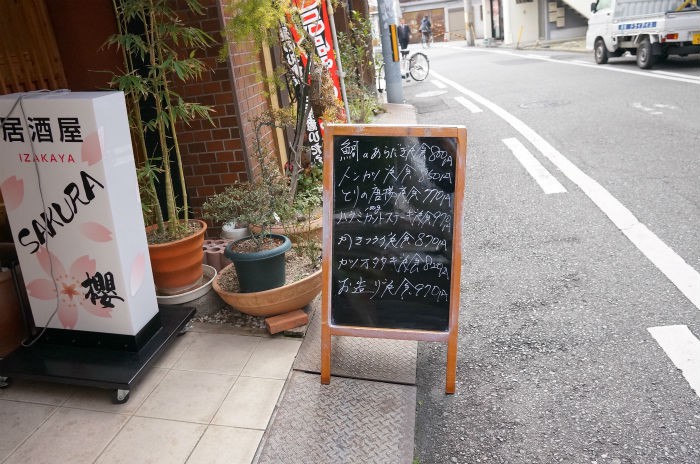 居酒屋
IZAKAYA
SAKURA
櫻
鯛のあらだき定食 800円
トンカツ定食 850円
とりの唐揚定食 770円
定食 970円
定食 870円
カツオタタキ定食 820円
お造り定食 970円